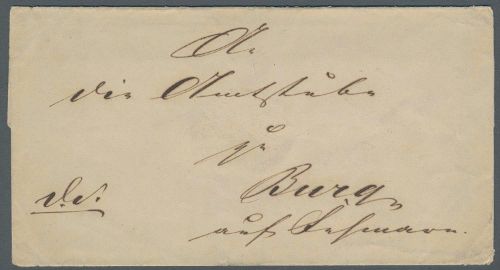 An
die Amtstube
zu
Burg
d. d.
auf Fehmarn.